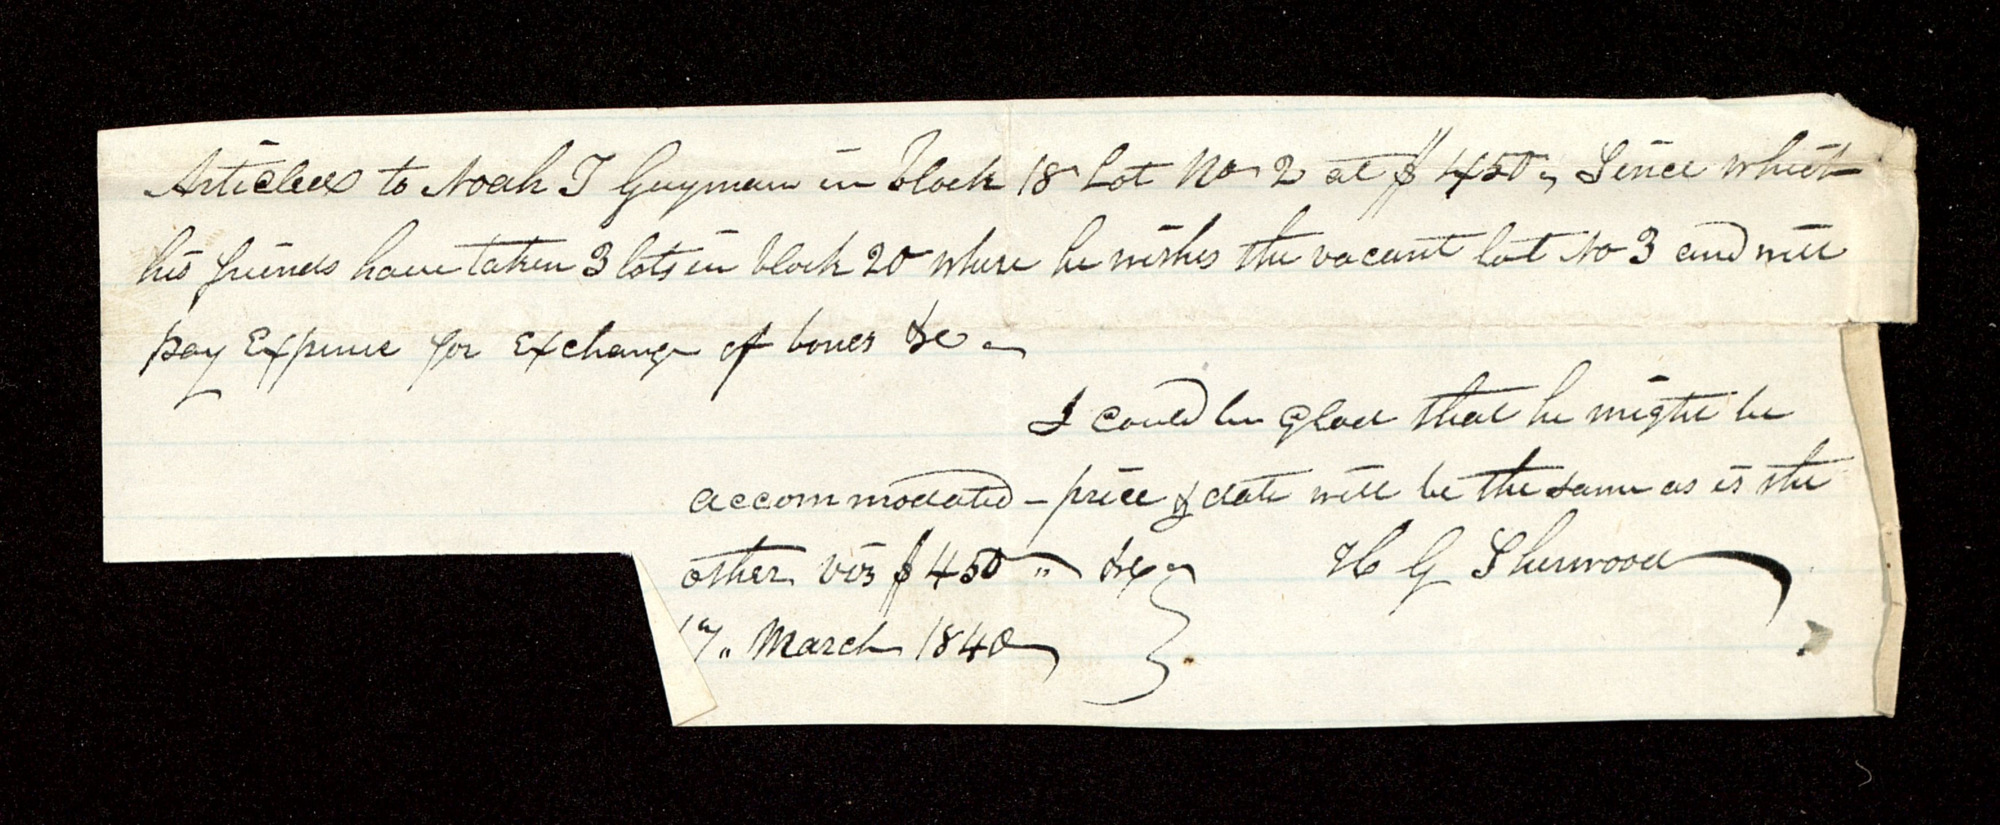 Articled to Noah T Guyman in block 18 Lot No 2 at $450, Since which
his friends have taken 3 lots in block 20 where he wishes the vacant lot No 3 and will
pay Expence for Exchange of bones &c –
I could be glad that he might be
accommodated – price & date will be the same as is the
other viz $450 " &c H G Sherwood
March 1840